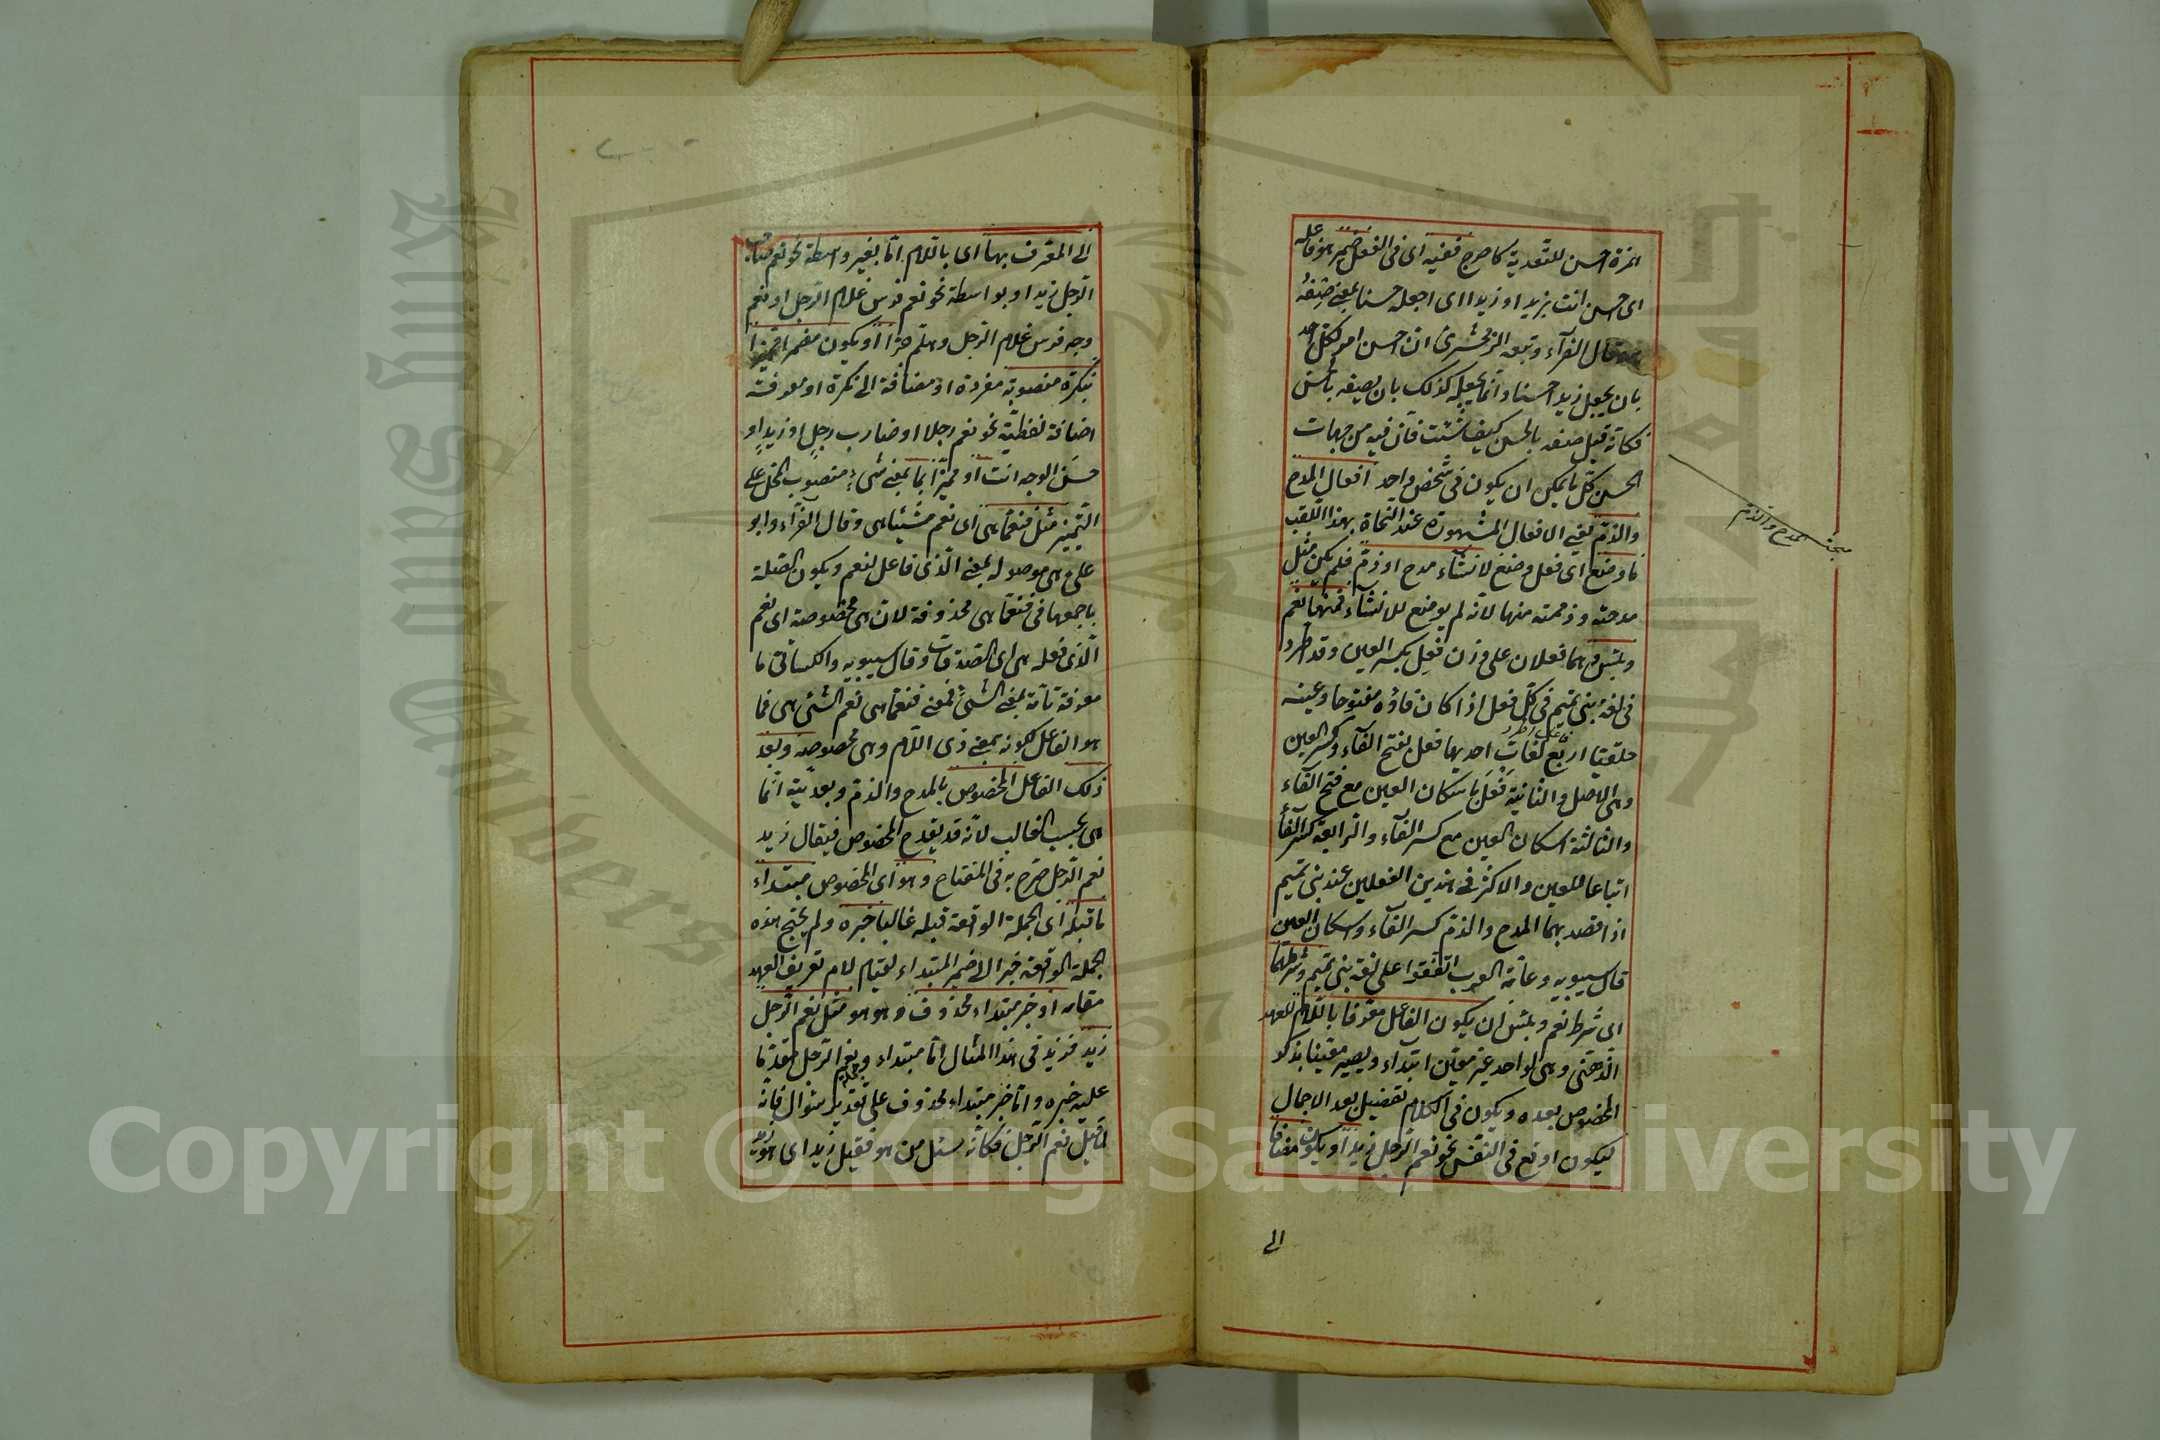 همزة احسن للتعدية كما صرح ففيه اى فى الفعل ضمير هو فاعله
اى احسن انت بزيد او زيدا اى اجعله حسنا بمعنى صفه
قال الفرآء وتبعه الزمخشرى ان احسن امر لكل احد
بان يجعل زيدا حسنا وانما يجعله كذلك بان يصفه بالحسن
فكانه قيل صفه بالحسن كيف شئت فان فيه من جهات
الحسن كل ما يمكن ان يكون فى شخص واحد افعال المدح
والذم يعنى الافعال المشهورة عند النحاة بهذا اللقب
ما وضع اى فعل وضع لانشاء مدح او ذم فلم يكن مثل
مدحته وذممته منها لانه لم يوضع للانشاء فمنها نعم
وبئس وهما فعلان على وزن فعل بكسر العين وقد اطرد
فى لغة بنى تميم فى كل فعل اذا كان فاؤه مفتوحا وعينه
حلقيا اربع لغات احديها فعل بفتح الفآء وكسر العين
وهى الاصل والثانية فعل باسكان العين مع فتح الفآء
والثالثة اسكان العين مع كسر الفآء والرابعة كسر الفآء
اتباعا للعين والاكثر فى هذين الفعلين عند بنى تميم
اذا قصد بهما المدح والذم كسر الفآء واسكان العين
قال سيبويه وعامة العرب اتفقوا على لغة بنى تميم وشرطهما
اى شرط نعم وبئس ان يكون الفاعل معرفا باللام للعهد
الذهنى وهى لواحد غير معين ابتدآء ويصير معينا بذكر
المخصوص بعده ويكون فى الكلام تفصيل بعد الاجمال
ليكون اوقع فى النفس نحو نعم الرجل زيد او يكون مضافا
الى
مبحث المدح والذم
الى المعرف بها اى باللام اما بغير واسطة نحو نعم صاحب
الرجل زيد او بواسطة نحو نعم فرس غلام الرجل او نعم
وجه فرس غلام الرجل وهلم جرا او يكون مضمرا مميزا
بنكرة منصوبة مفردة او مضافة الى نكرة او معرفة
اضافة لفظية نحو نعم رجلا او ضارب رجل او زيد او
حسن الوجه انت او مميزا بما بمعنى شئ منصوب المحل على
التمييز مثل فنعما هى اى نعم شيئا هى وقال الفرآء وابو
على هى موصولة بمعنى الذى فاعل لنعم ويكون الصلة
باجمعها فى فنعما هى محذوفة لان هى مخصوصة اى نعم
الذى فعله هى اى الصدقات وقال سيبويه والكسائى ما
معرفة تامة بمعنى الشئ فمعنى فنعما هى نعم الشئ هى فما
هو الفاعل لكونه بمعنى ذى اللام وهى مخصوصة وبعد
ذلك الفاعل المخصوص بالمدح والذم وبعديته انما
هى بحسب الغالب لانه قد يقدم المخصوص فيقال زيد
نعم الرجل صرح به فى المفتاح وهو اى المخصوص مبتداء
ما قبله اى الجملة الواقعة قبله غالبا خبره ولم يحتج هذه
الجملة الواقعة خبرا الى ضمير المبتداء لقيام لام تعريف العهد
مقامه او خبر مبتداء محذوف وهو هو مثل نعم الرجل
زيد فزيد فى هذا المثال اما مبتداء ونعم الرجل مقدما
عليه خبره واما خبر مبتداء محذوف على تقدير سؤال فانه
لما قيل نعم الرجل فكانه سئل من هو فقيل زيد اى هو زيد